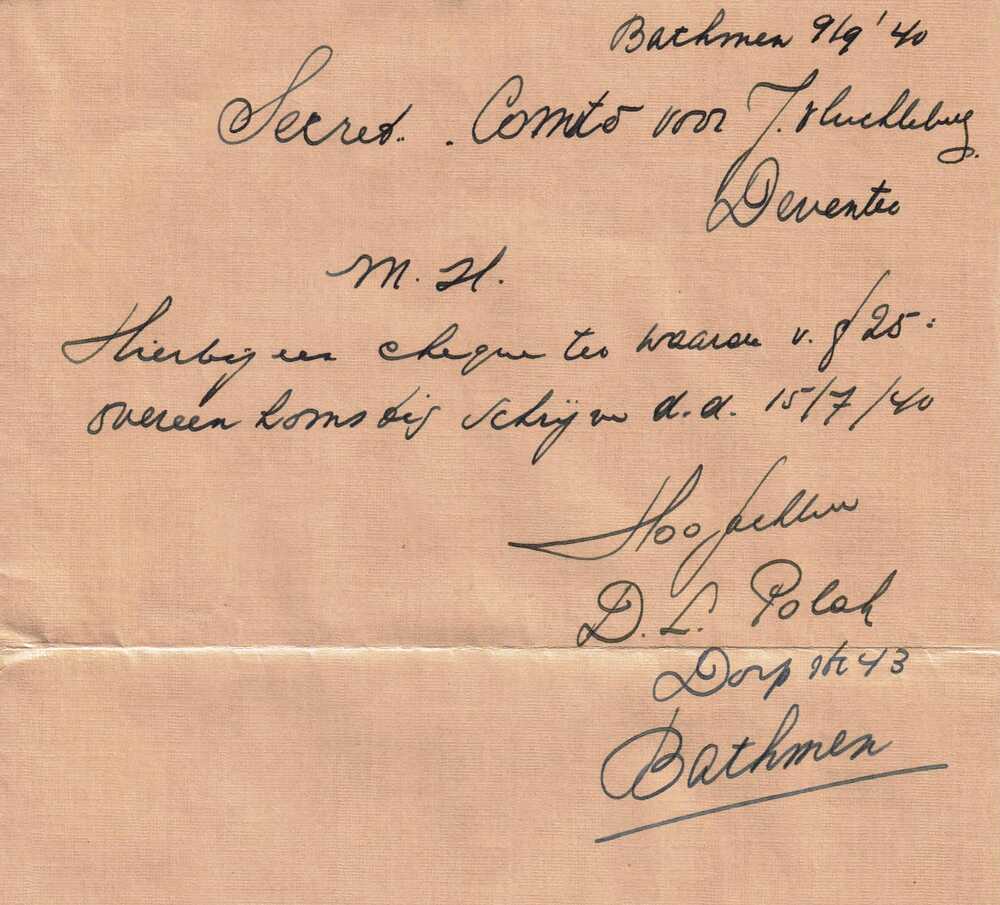 Bathmen 9/9 '40
Secret. . Comté voor J. vluchteling
Deventer
M. H.
Hierbij een cheque ter waarde v. f 25:
overeenkomstig schrijven d.d. 15/7/40
Hoogachtend
D. L. Polak
Dorpstr 43
Bathmen